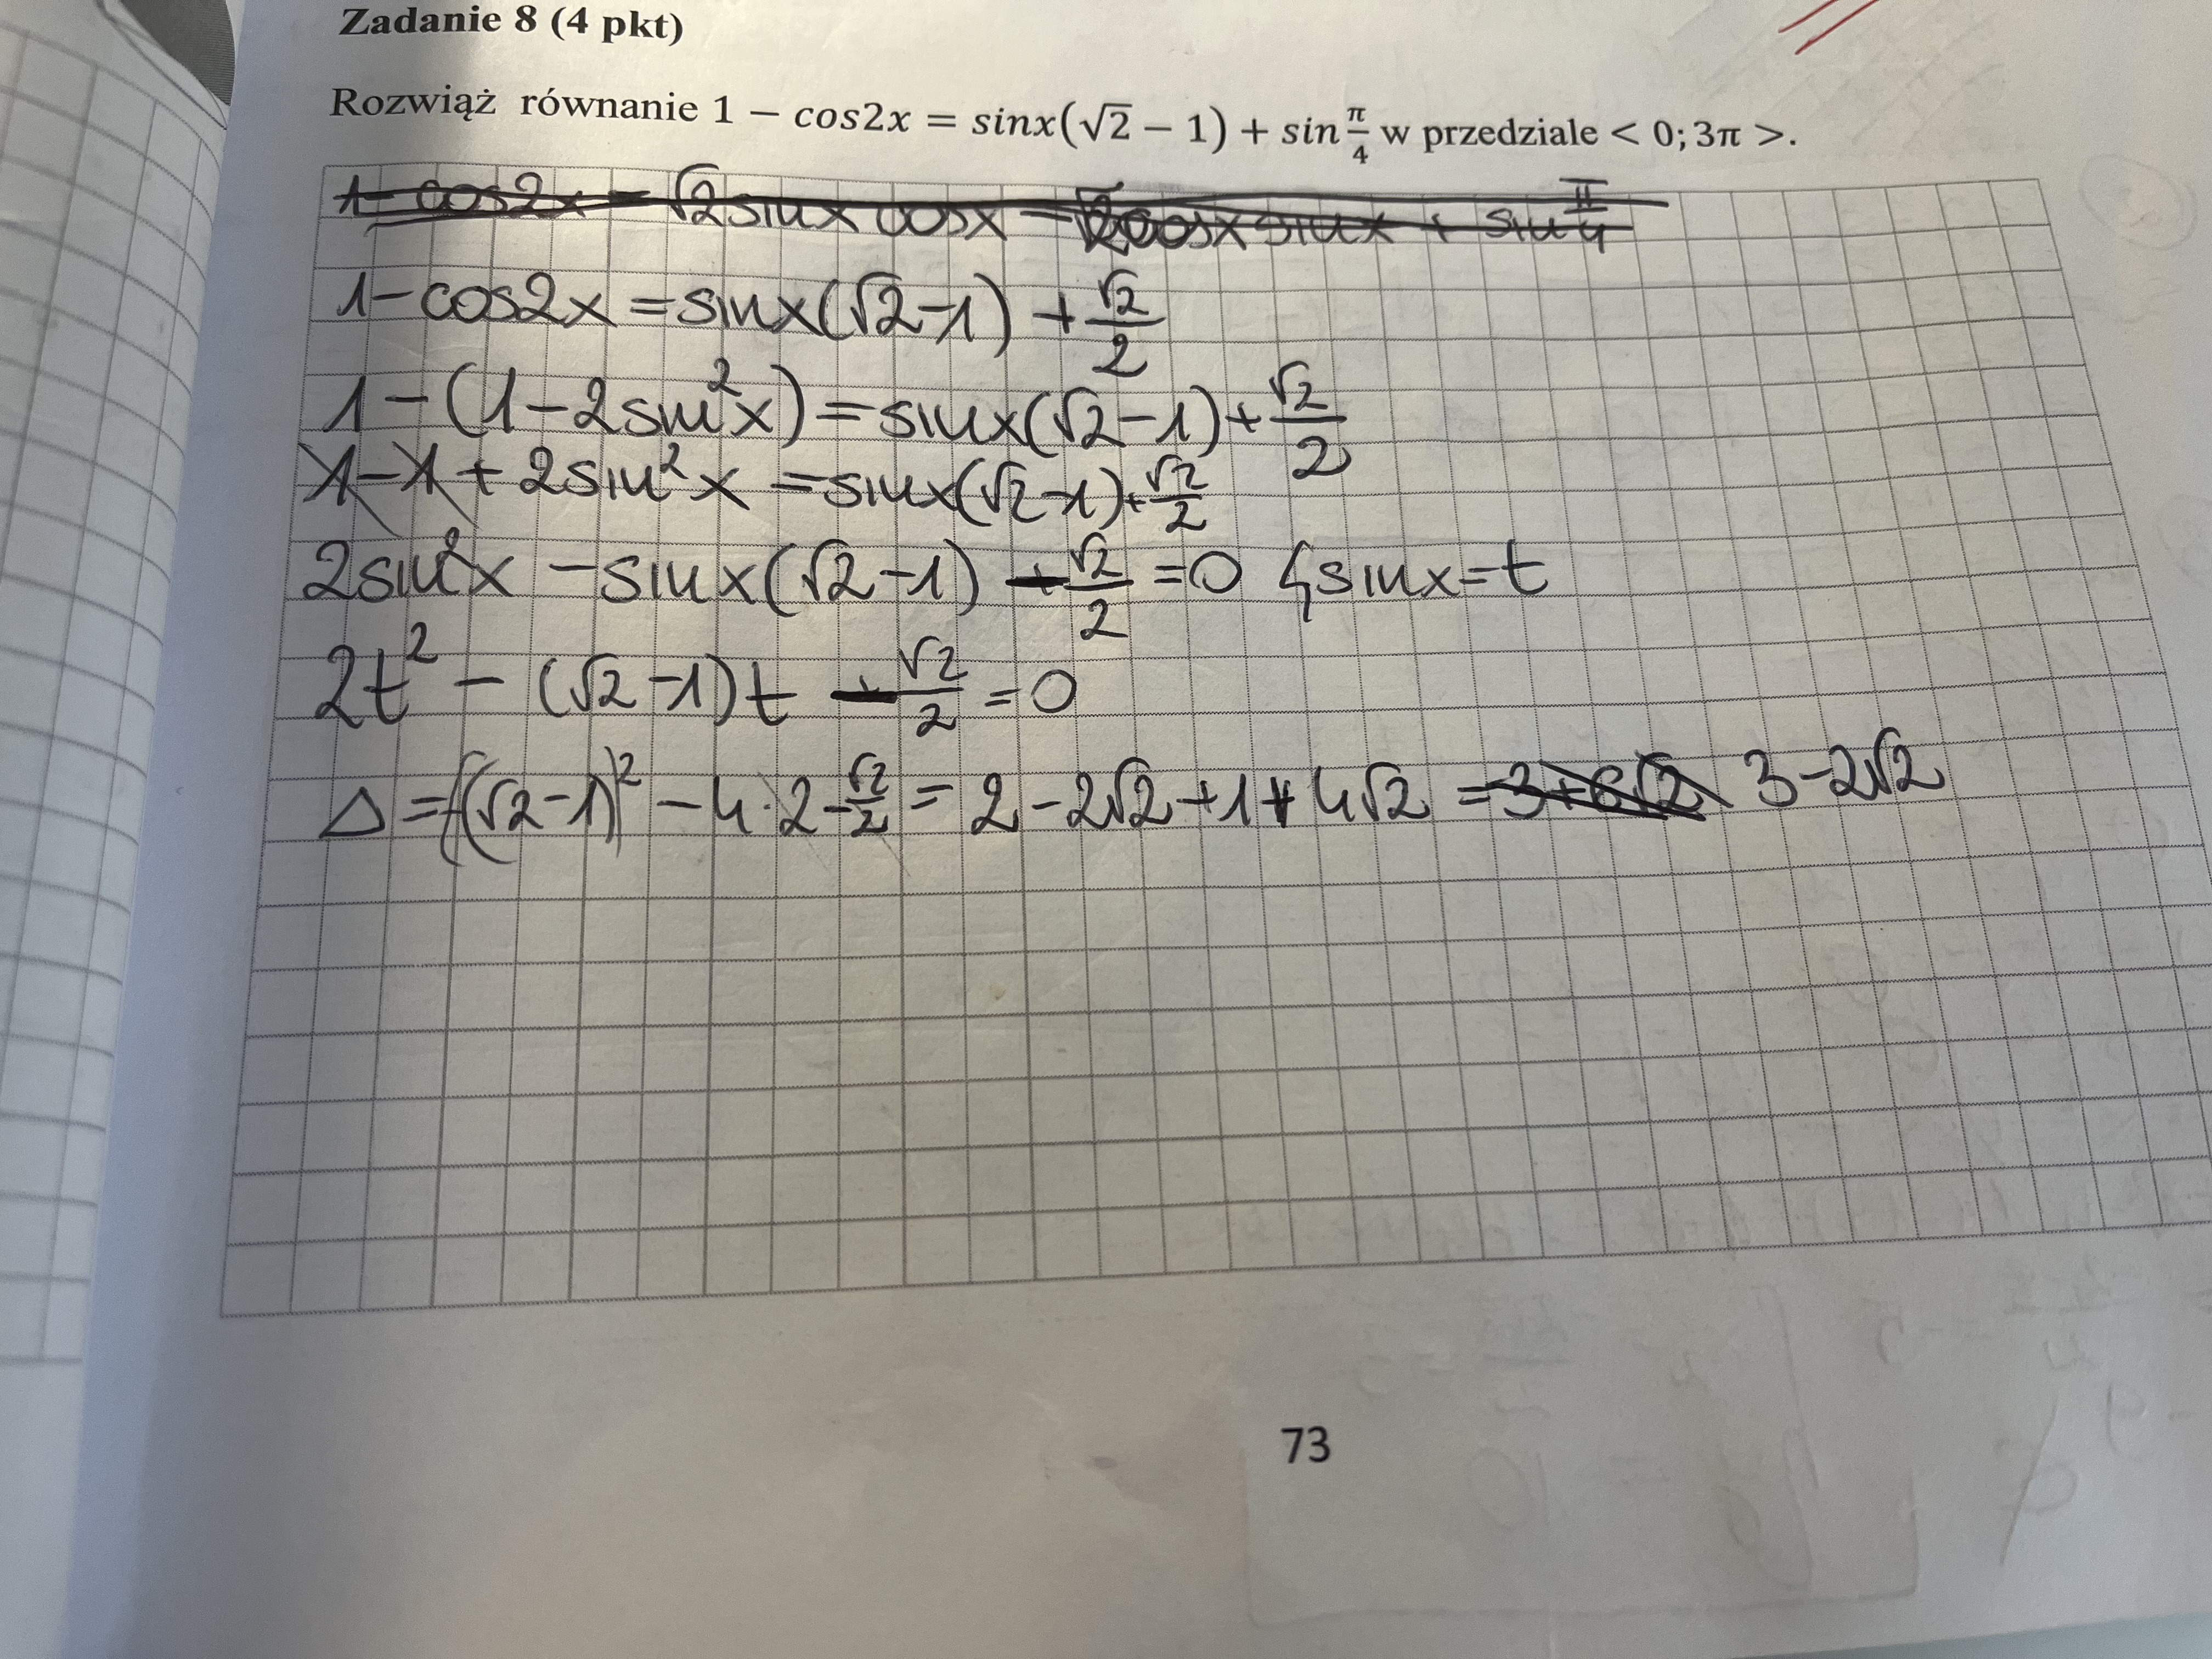 Zadanie 8 (4 pkt)
Rozwiąż równanie 1 − cos2x = sinx(√2 − 1) + sin π/4 w przedziale < 0; 3π >.
1 − cos2x = √2 sinx cosx − cosx sinx + sin π/4
1 − cos2x = sinx(√2−1) + √2/2
1 − (1 − 2sin²x) = sinx(√2−1) + √2/2
1 − 1 + 2sin²x = sinx(√2−1) + √2/2
2sin²x − sinx(√2−1) − √2/2 = 0 ς sinx = t
2t² − (√2−1)t − √2/2 = 0
Δ = ((√2−1)² − 4·2 − √2/2 = 2 − 2√2 + 1 + 4√2 = 3+6√2 3 − 2√2
73